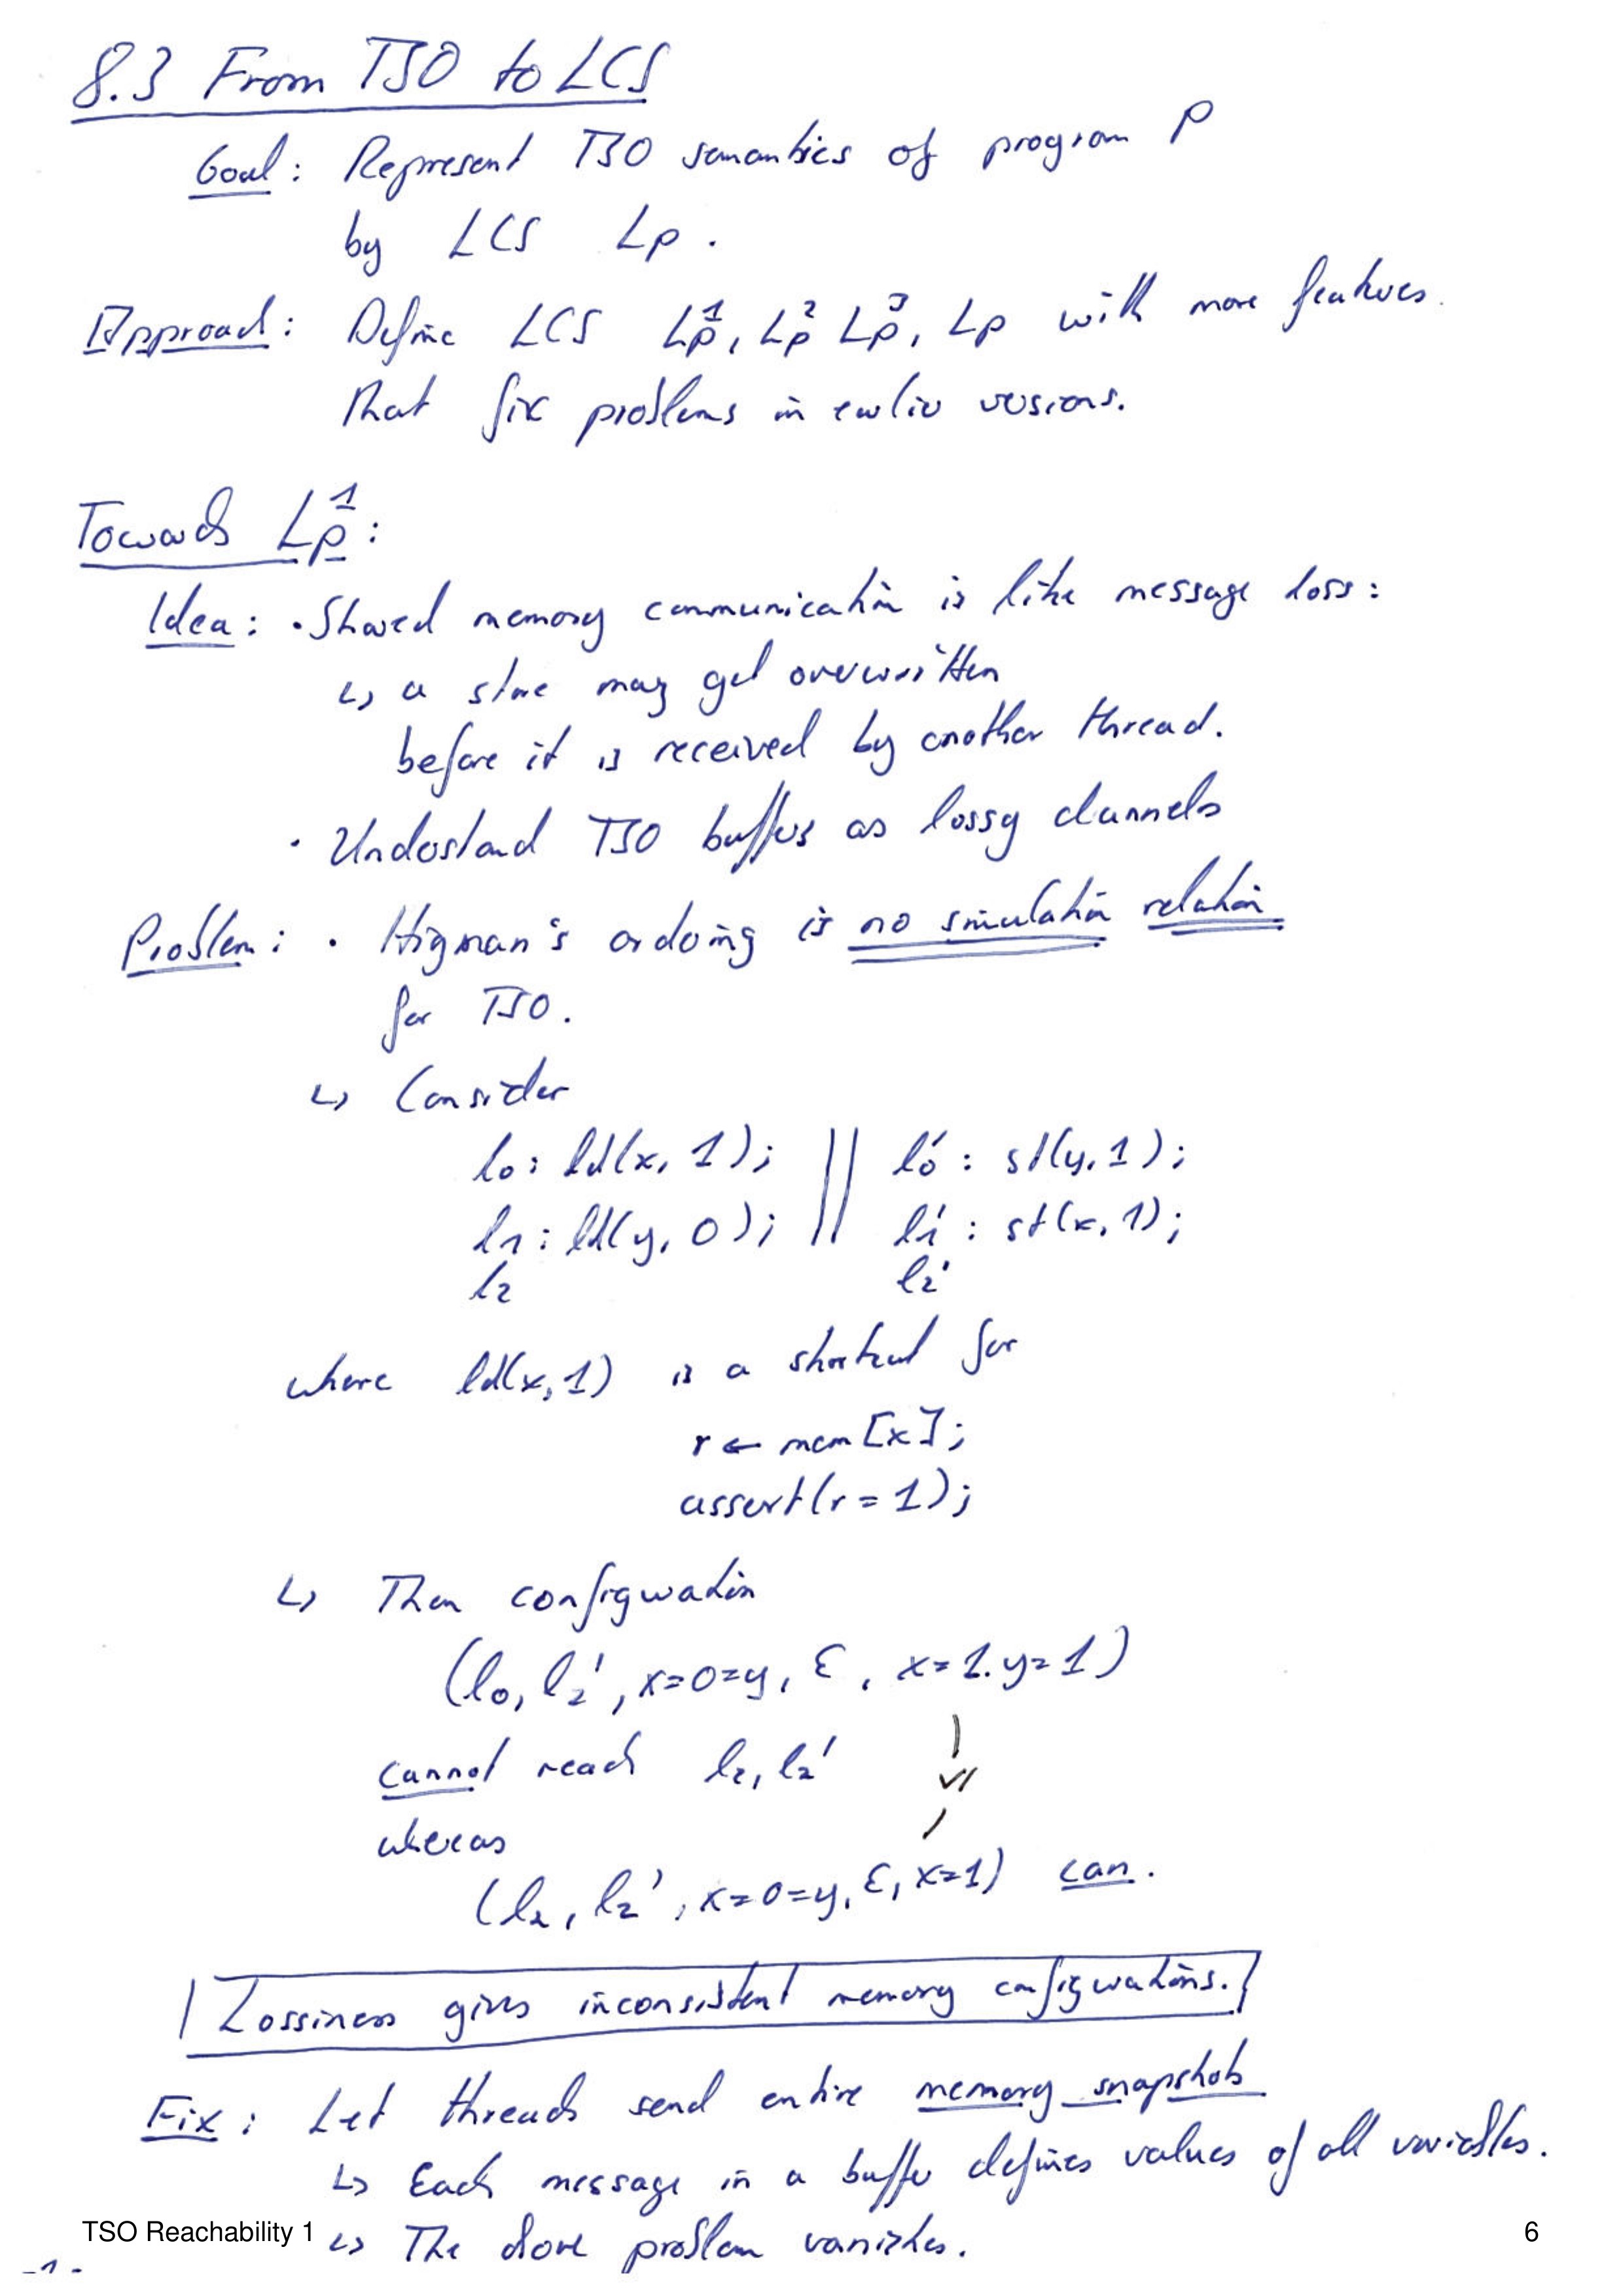 8.3 From TSO to LCS
Goal: Represent TSO semantics of program P
by LCS Lp.
Approach: Define LCS Lp¹, Lp² Lp³, Lp with more features.
that fix problems in earlier versions.
Towards Lp¹:
Idea: · Shared memory communication is like message loss:
↳ a store may get overwritten
before it is received by another thread.
· Understand TSO buffers as lossy channels
Problem: · Higman's ordering is no simulation relation
for TSO.
↳ Consider
l₀: ld(x, 1); || l₀' : st(y, 1);
l₁: ld(y, 0); || l₁' : st(x, 1);
l₂ l₂'
where ld(x, 1) is a shortcut for
r ← mem[x];
assert(r = 1);
↳ Then configuration
(l₀, l₂', x=0=y, ε, x=1.y=1)
cannot reach l₂, l₂'
≤
whereas
(l₂, l₂', x=0=y, ε, x=1) can.
Lossiness gives inconsistent memory configurations.
Fix: Let threads send entire memory snapshots
↳ Each message in a buffer defines values of all variables.
TSO Reachability 1 ↳ The above problem vanishes. 6
-1-